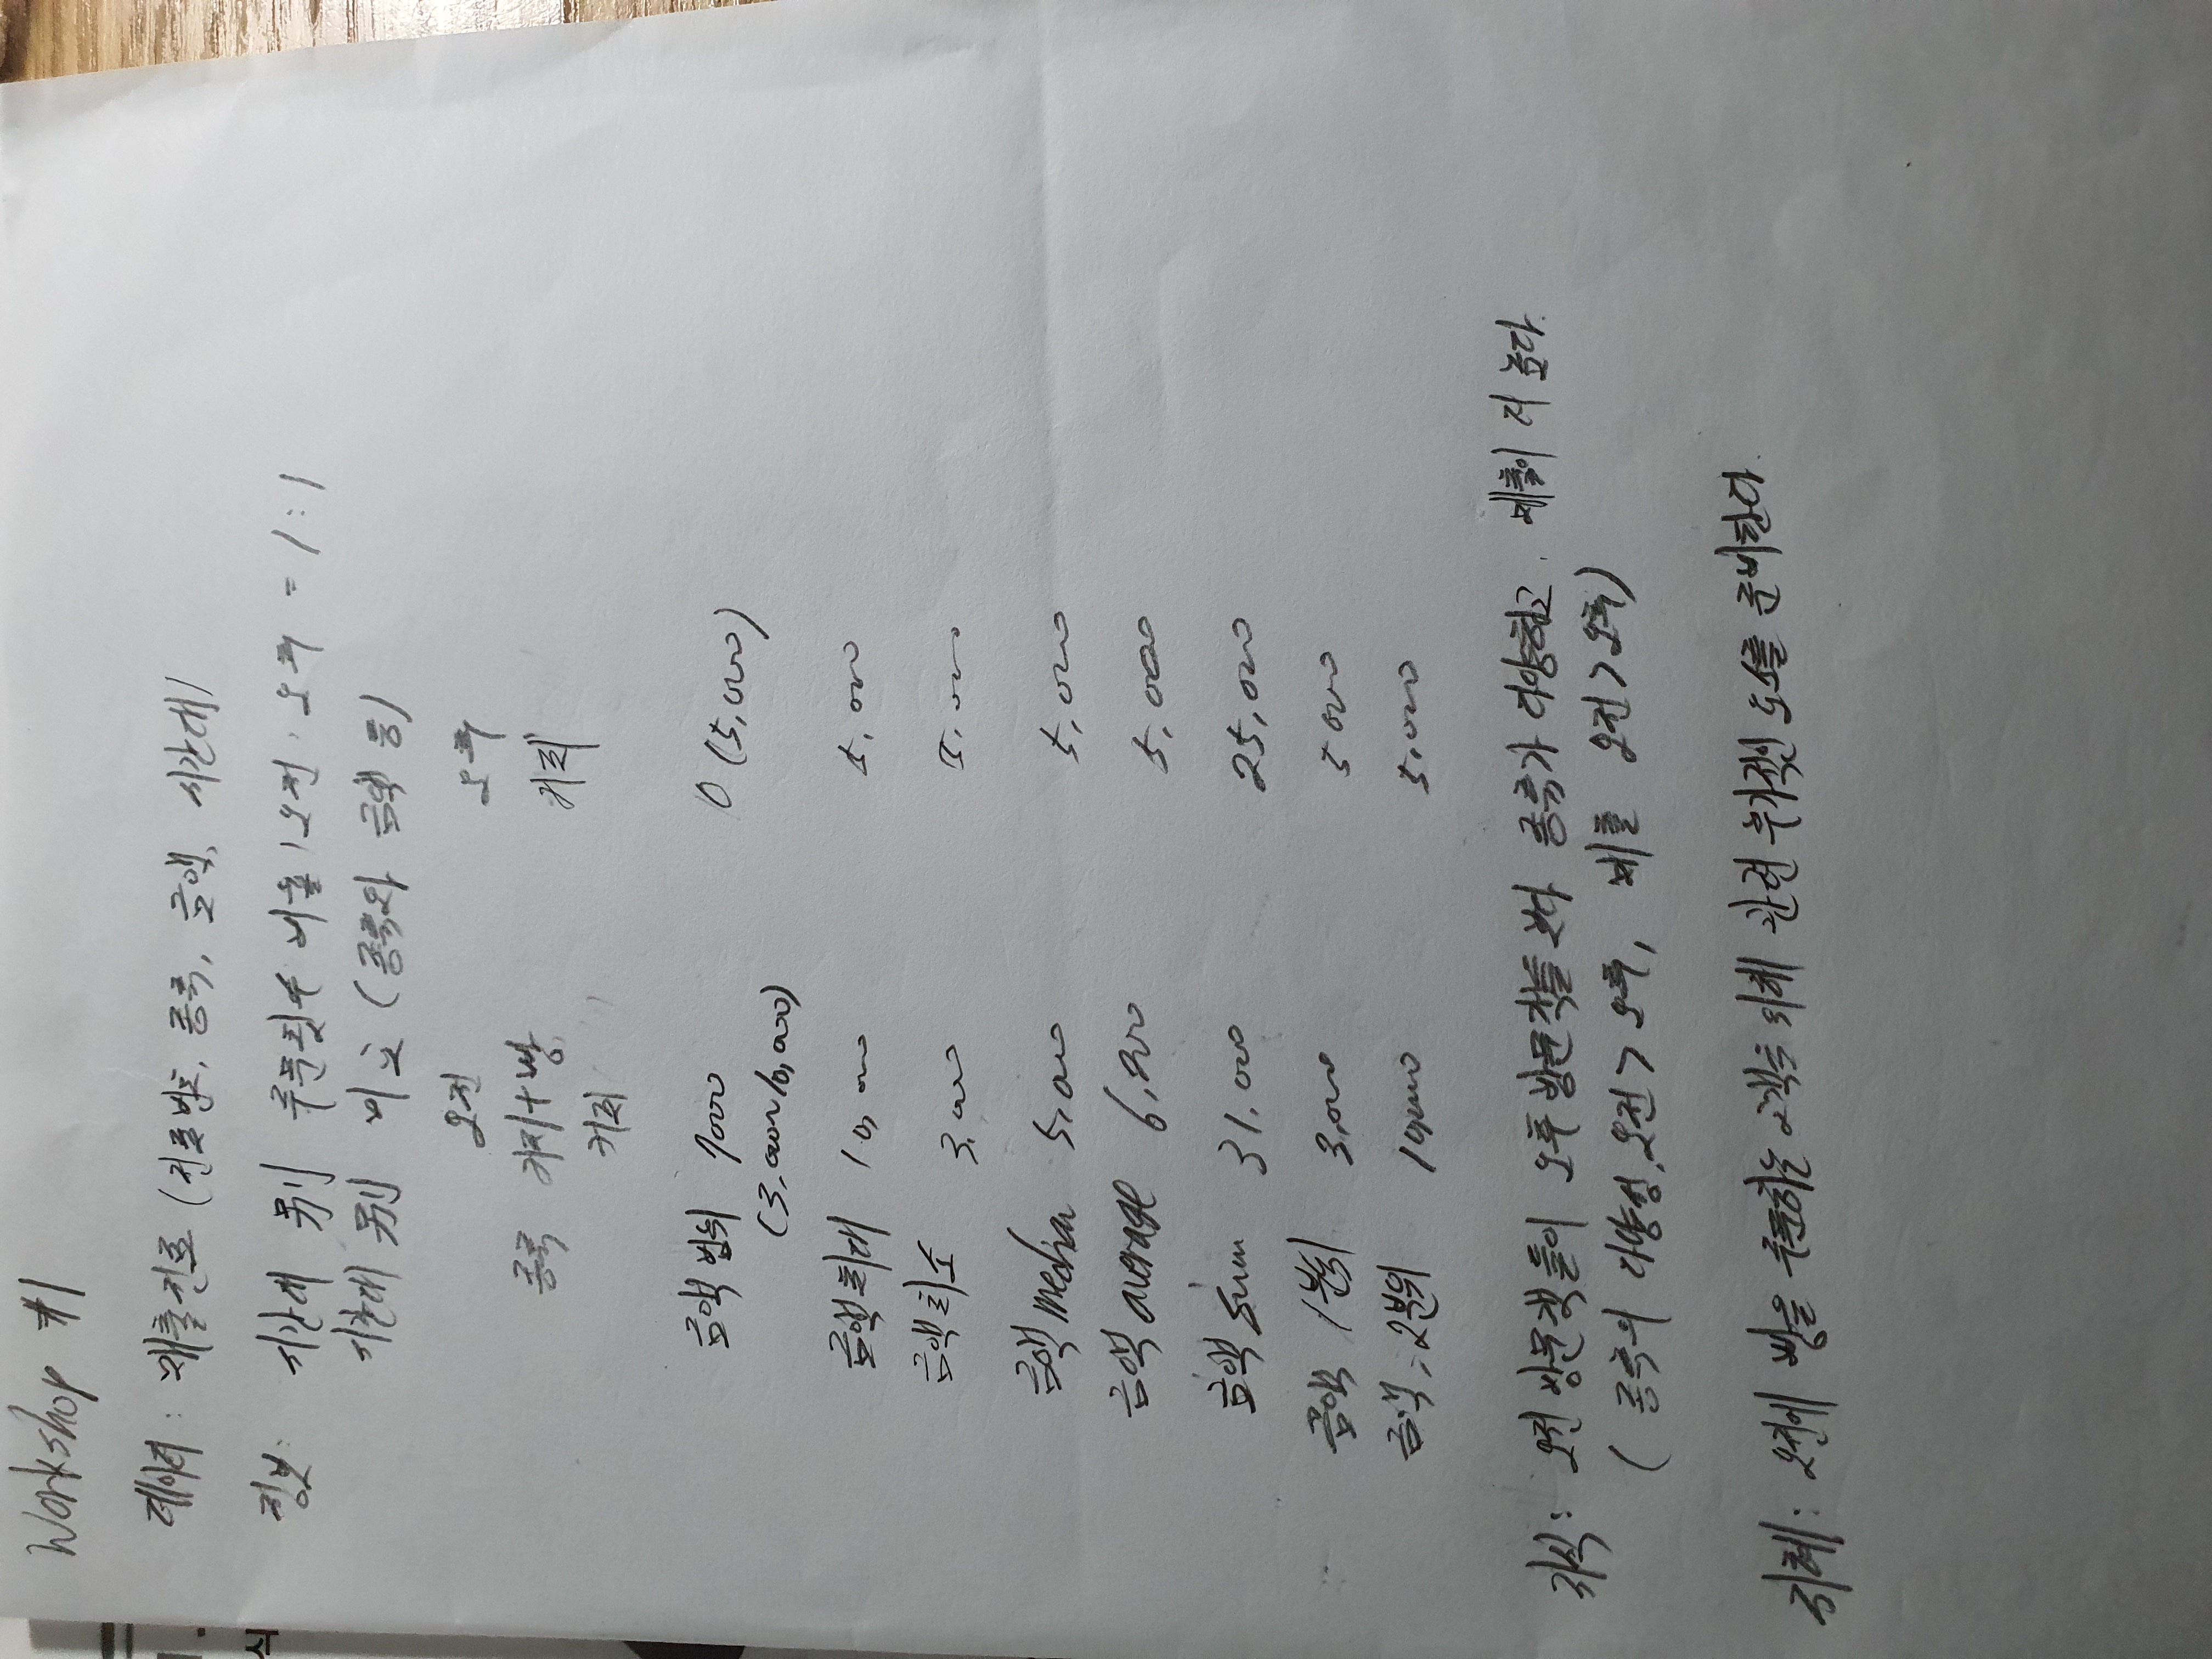 Workshop #1
데이터 : 매출전표 (전표번호, 종류, 금액, 시간대)
정보: 시간대 別 주문횟수 비율 오전 : 오후 = 1 : 1
시간대 別 비교 (종류와 금액 등)
오전 오후
종류 커피+빵 커피
커피
금액 범위 7000 0 (5,000)
(3,000~10,000)
금액최대 10,000 5,000
금액최소 3,000 5,000
금액 median 5,000 5,000
금액 average 6,200 5,000
금액 Sum 31,000 25,000
금액 1분위 3,000 5000
금액 2분위 10,000 5,000
지식 : 오전 방문객들이 오후 방문객들 보다 종류가 다양하고, 매출이 더 높다.
( 종류의 다양성, 오전 > 오후, 매출 오전 > 오후)
지혜 : 오전에 빵을 주문하는 고객을 위해 관련 추가적인 를 준비한다.